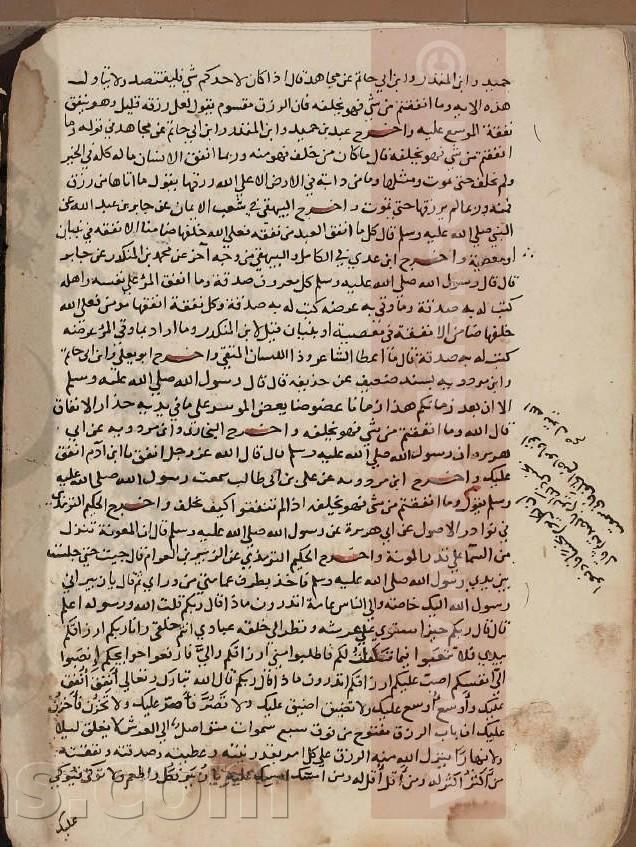 حميد وابن المنذر وابن ابي حاتم عن مجاهد قال اذا كان لاحدكم شي فليقتصد ولا يتاول
هذه الايه وما انفقتم من شي فهو يخلفه فان الرزق مقسوم يقول لعل رزقه قليل وهو ينفق
نفقة الموسع عليه واخرج عبد بن حميد وابن المنذر وابن ابي حاتم عن مجاهد في قوله وما
انفقتم من شي فهو يخلفه قال ما كان من خلف فهو منه وربما انفق الانسان ماله كله في الخير
ولم يخلف حتى يموت ومثلها وما من دابة في الارض الا على الله رزقها يقول ما اتاها من رزق
فمنه وربما لم يرزقها حتى تموت واخرج البيهقي في شعب الايمان عن جابر بن عبد الله عن
النبي صلي الله عليه وسلم قال كل ما انفق العبد من نفقة فعلي الله خلفها ضامنا الا نفقة في بنيان
او معصية واخرج ابن عدي في الكامل والبيهقي من وجه آخر عن محمد بن المنكدر عن جابر
قال قال رسول الله صلي الله عليه وسلم كل معروف صدقة وما انفق المرء على نفسه واهله
كتب له به صدقة وما وقي به عرضه كتب له به صدقة وكل نفقة انفقها مومن فعلي الله
خلفها ضامن الا نفقة في معصية او بنيان قيل لابن المنكدر وما اراد بما وقي المرء عرضه
كتب له به صدقة قال ما اعطا الشاعر وذا اللسان المتقي واخرج ابو يعلي وابن ابي حاتم
وابن مردويه بسند ضعيف عن حذيفه قال قال رسول الله صلي الله عليه وسلم
الا ان بعد زمانكم هذا زمانا عضوضا يعض الموسر على ما في يديه حذار الانفاق
قال الله وما انفقتم من شي فهو يخلفه واخرج البخاري وابن مردويه عن ابي
هريره ان رسول الله صلي الله عليه وسلم قال قال الله عز وجل انفق يا ابن آدم انفق
عليك واخرج ابن مردويه عن علي بن ابي طالب سمعت رسول الله صلي الله عليه
وسلم يقول وما انفقتم من شي فهو يخلفه اذا لم تنفقوا كيف يخلف واخرج الحكيم الترمذي
في نوادر الاصول عن ابي هريرة عن رسول الله صلي الله عليه وسلم قال ان المعونة تنزل
من السما على قدر المونة واخرج الحكيم الترمذي عن الزبير بن العوام قال جيت حتي جلست
بين يدي رسول الله صلي الله عليه وسلم فاخذ بطرف عمامتي من وراي ثم قال يا زبير اني
رسول الله اليك خاصة والى الناس عامة اتدرون ماذا قال ربكم قلت الله ورسوله اعلم
قال قال ربكم حين استوي على عرشه ونظر الي خلقه عبادي انتم خلقي وانا ربكم ارزاقكم
بيدي فلا تتعبوا فيما تكفلت لكم فاطلبوا مني ارزاقكم والي فارفعوا حوايجكم انصبوا
الي انفسكم اصب عليكم ارزاقكم اتدرون ماذا قال ربكم قال الله تبارك وتعالي انفق انفق
عليك واوسع اوسع عليك ولا تضيق اضيق عليك ولا تصر فاصر عليك ولا تخزن فاخزن
عليك ان باب الرزق مفتوح من فوق سبع سموات متواصل الي العرش لا يغلق ليلا
ولا نهارا ينزل الله منه الرزق على كل امرء بقدر نيته وعطيته وصدقته ونفقته
من اكثر اكثر له ومن اقل اقل له ومن امسك امسك عليه يا زبير فكل واطعم ولا توكي فيوكى
عليك